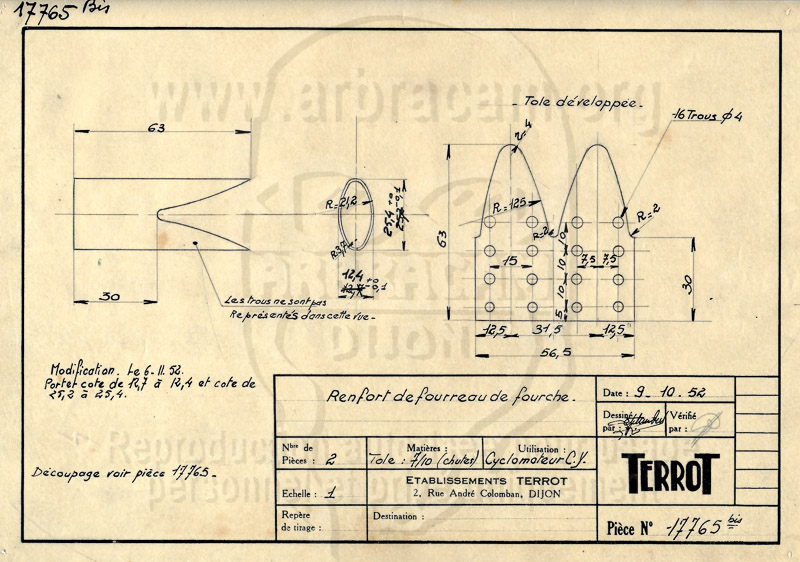 17765 Bis
www.arbracam.org
Tole développée.
16 Trous φ4
63
r=4
R=21,2
R=3,7
25,4 +0 -0,1
12,4 +0 -0,1
R=125
R=2
63
15
7,5 7,5
10
10
10
5
30
30
Les trous ne sont pas
Représentés dans cette vue-
12,5 31,5 12,5
56,5
DIJON
Modification. Le 6.11.52.
Porter cote de 12,7 à 12,4 et cote de
25,2 à 25,4.
Découpage voir pièce 17765-
Renfort de fourreau de fourche.
Date : 9.10.52
Dessiné par :
Vérifié par :
Nbre de Pièces : 2
Matières : Tole : 7/10 (chutes)
Utilisation : Cyclomoteur C.Y.
Echelle : 1
ETABLISSEMENTS TERROT
2, Rue André Colomban, DIJON
TERROT
Repère de tirage :
Destination :
Pièce N° 17765 bis